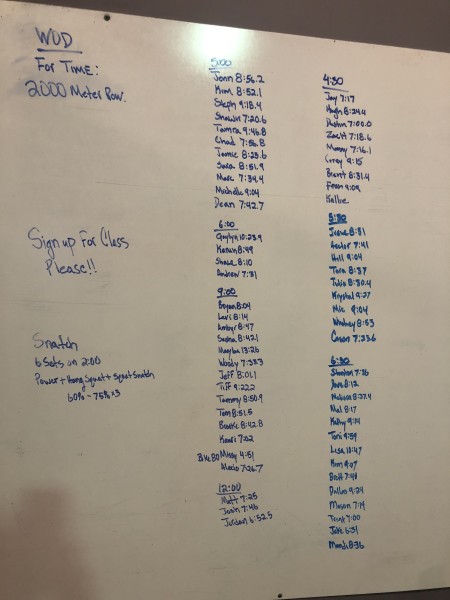 WOD
For Time:
2000 Meter Row.
Sign up For Class
Please!!
Snatch
6 Sets on 2:00
Power + Hang Squat + Squat Snatch
60% - 75% x3
5:00
Jenn 8:56.2
Kim 8:52.1
Steph 9:18.4
Shawn 7:20.6
Tamra 9:46.8
Chad 7:56.8
Jamie 8:23.6
Sara 8:51.9
Marc 7:34.4
Michelle 9:04
Dean 7:42.7
6:00
10:23.9
8:49
Shane 8:10
Andrew 7:31
9:00
Bryan 8:04
Levi 8:14
Amber 8:47
Sasha 8:42.1
13:26
Woody 7:33.3
Jeff 8:01.1
Tiff 9:22.2
Tammy 8:50.9
Tom 8:51.5
Brooke 8:42.8
7:02
Bike 80 Missy 4:51
7:26.7
12:00
Matt 7:25
Josh 7:46
Jordan 6:52.5
4:30
Jay 7:17
Hugh 8:24.4
7:00.0
Zach 7:18.6
7:16.1
Corey 9:15
Brent 8:31.4
9:09
Kallie
5:30
Jesse 8:31
Hector 7:41
Hill 9:04
Tara 8:37
Julie 8:30.4
Krystal 9:27
Mic 9:04
Whitney 8:53
Cason 7:23.6
6:30
7:36
8:12
Melissa 8:37.4
Mel 8:17
Kathy 9:14
Toni 9:59
Lisa 10:47
Kim 9:07
Britt 7:48
9:24
Mason 7:14
Trent 7:00
Jake 6:31
Mandi 8:36